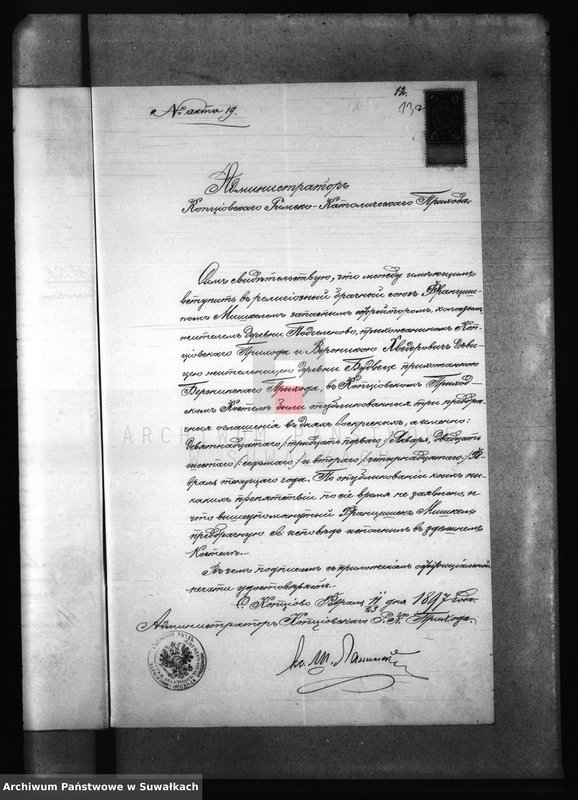 № акта 19.
12.
Администраторъ
Копціовскаго Римско-Католическаго Прихода.
Симъ свидѣтельствую, что между имѣющимъ
вступить въ религіозный брачный союзъ Франциш-
комъ Мишкелемъ запаснымъ ефрейторомъ,
жителемъ деревни прихожаниномъ Коп-
ціовскаго Прихода и Вероникою
цею жительницею деревни Будвеце прихожанкою
Бержникскаго Прихода, въ Копціовскомъ Приход-
скомъ Костелѣ были опубликованныя три предбрач-
ныя оглашенія въ дняхъ воскресныхъ, а именно:
девятнадцатаго /тридцать перваго/ Января, двадцать
шестаго /седьмаго/ и втораго /четырнадцатаго/ Фе-
враля текущаго года. По опубликованіи коихъ ни-
какихъ препятствій по сіе время не заявлено, и
что вышеупомянутый Францишекъ Мишкель
предбрачную св. исповѣдь исполнилъ въ здѣшнемъ
Костелѣ.
Въ чемъ подписомъ съ приложеніемъ оффиціальной
печати удостовѣряю.
С. Копціово Февраля 11/23 дня 1897 года.
Администраторъ Копціовскаго Р. К. Прихода.
Archiwum Państwowe w Suwałkach